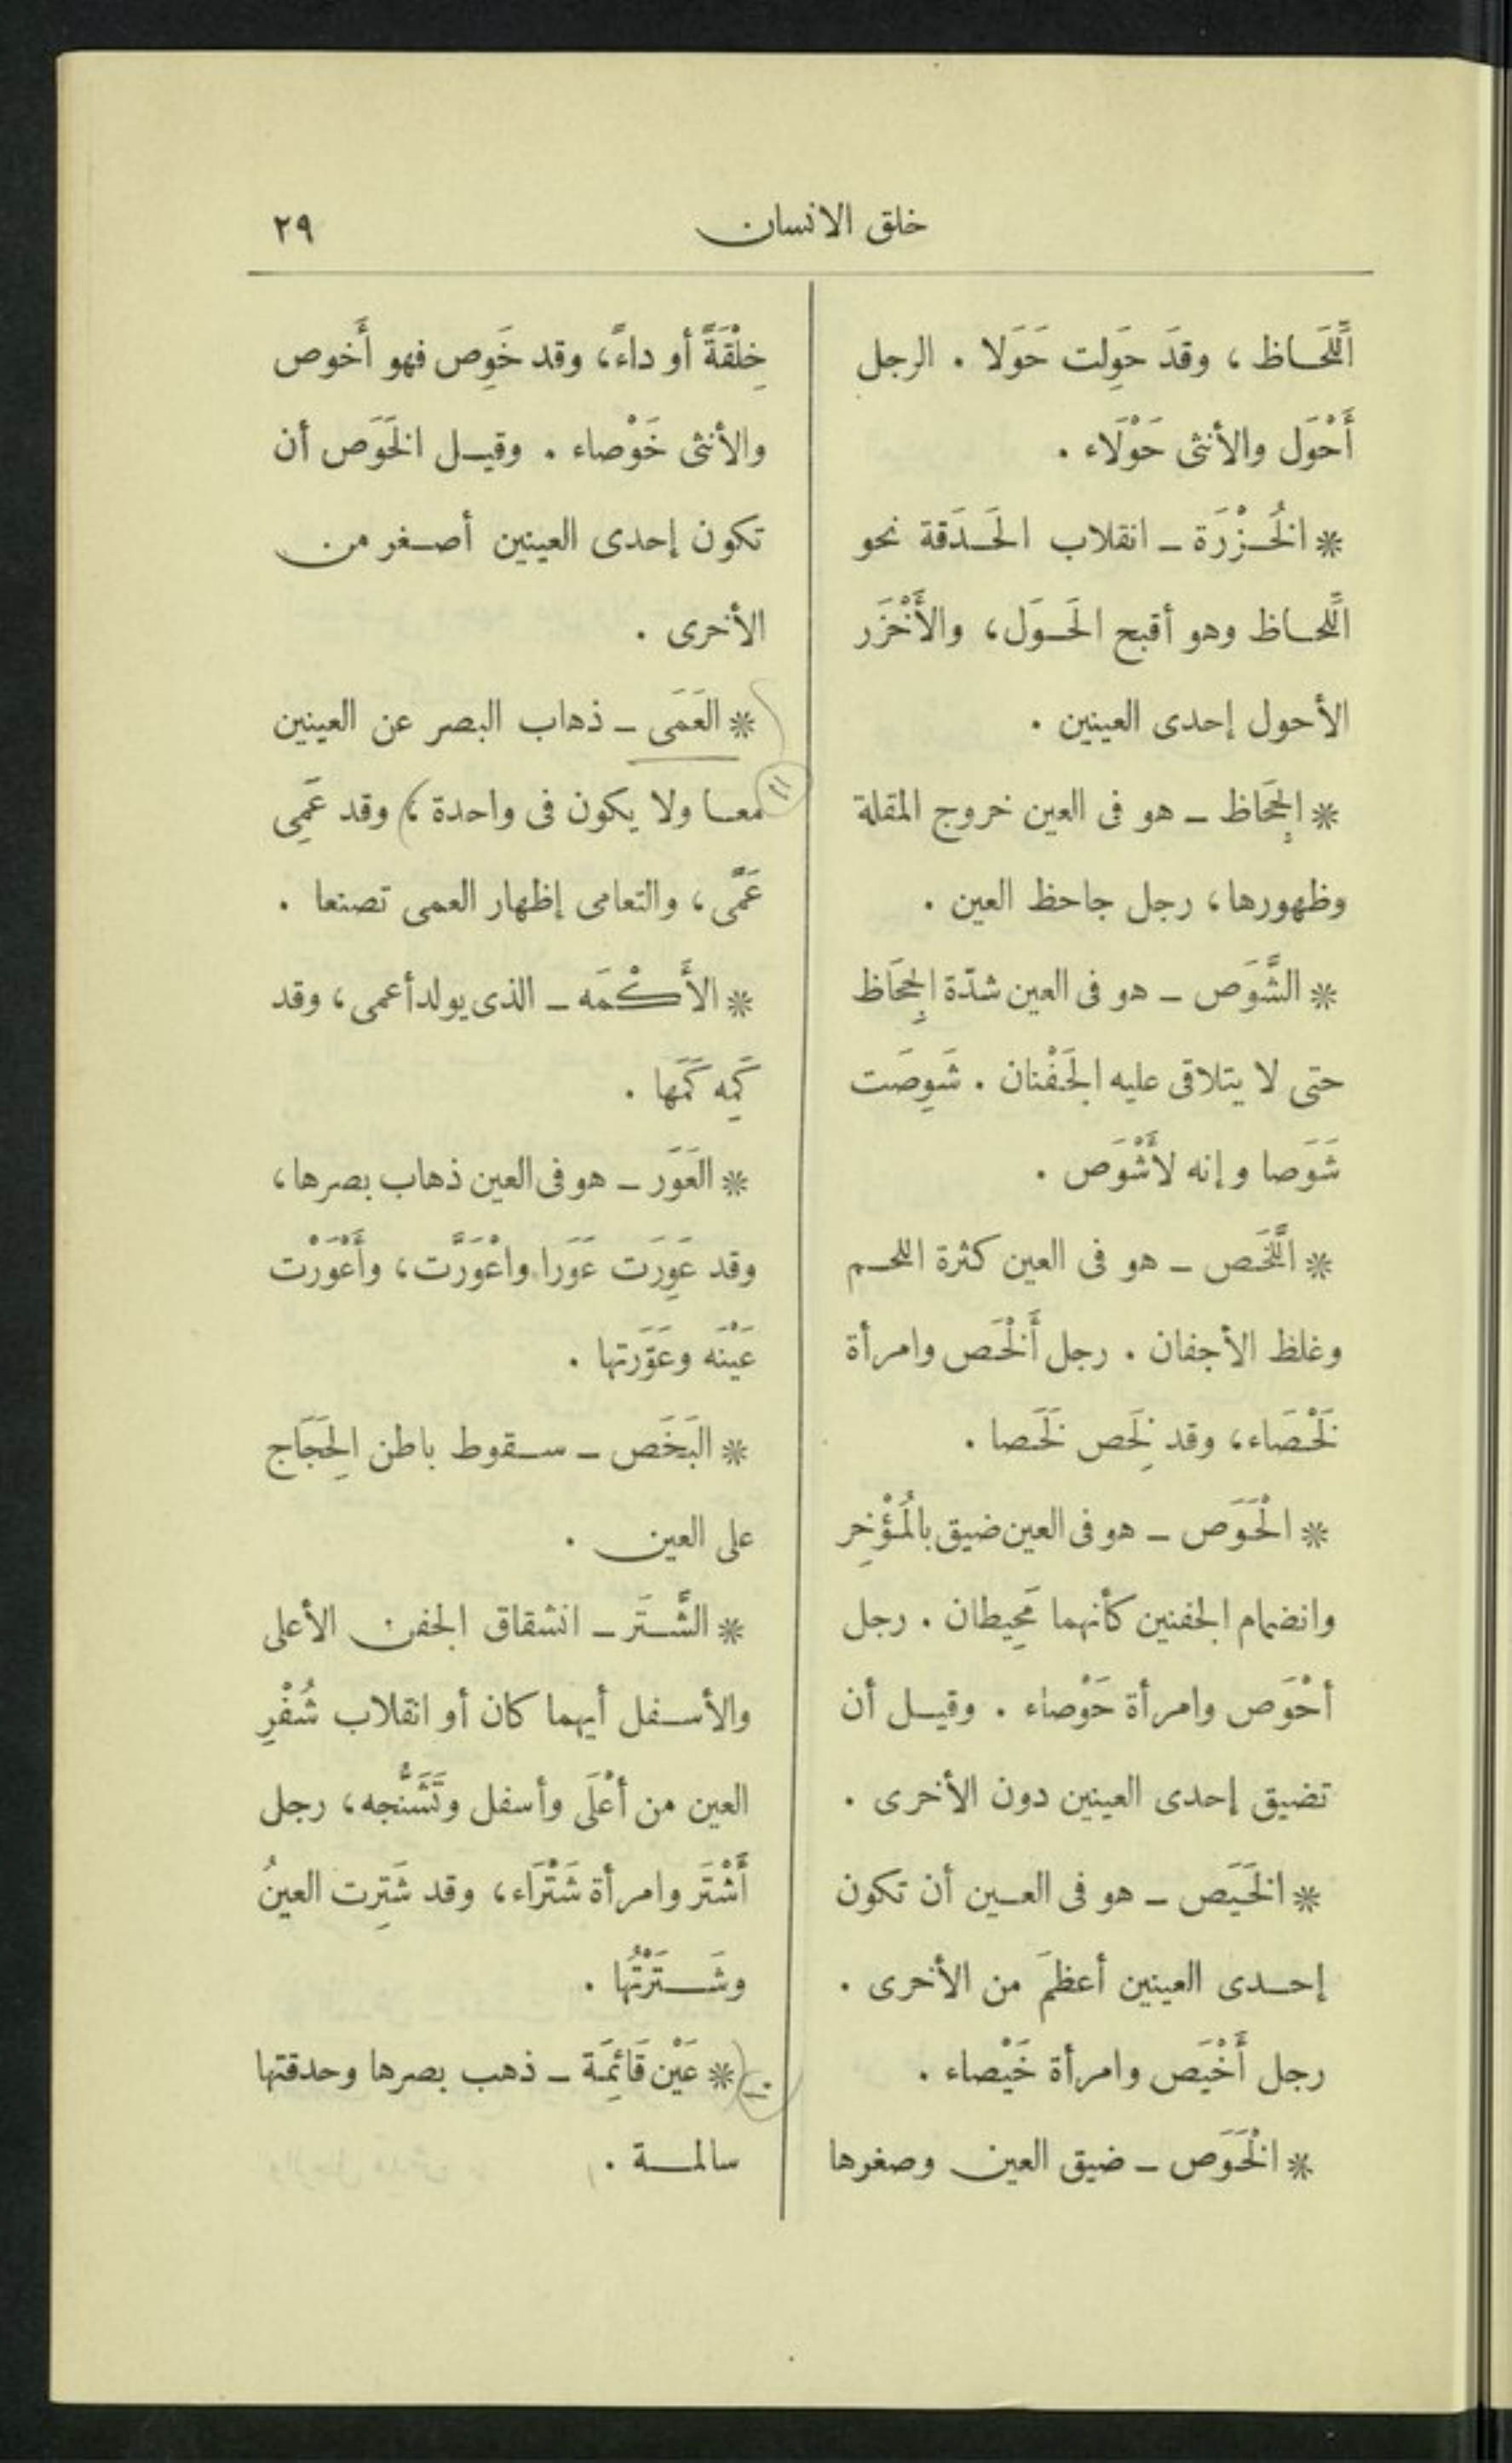 خلق الانسان
٢٩
اللَّحَاظ ، وقَد حَوِلت حَوَلا . الرجل
أَحْوَل والأنثى حَوْلَاء .
* الخُزْرَة ـ انقلاب الحَدَقة نحو
اللَّحاظ وهو أقبح الحَوَل، والأَخْزَر
الأحول إحدى العينين .
* الجِحَاظ ـ هو فى العين خروج المقلة
وظهورها، رجل جاحظ العين .
* الشَّوَص ـ هو فى العين شدّة الجِحَاظ
حتى لا يتلاقى عليه الجَفْنان . شَوِصَت
شَوَصا وإنه لأَشْوَص .
* اللَّخَص ـ هو فى العين كثرة اللحم
وغلظ الأجفان . رجل أَلْخَص وامرأة
لَخْصَاء، وقد لَخِص لَخَصا .
* الْحَوَص ـ هو فى العين ضيق بالمُؤْخِر
وانضمام الجفنين كأنهما مَخِيطان . رجل
أحْوَص وامرأة حَوْصاء . وقيل أن
تضيق إحدى العينين دون الأخرى .
* الخَيَص ـ هو فى العين أن تكون
إحدى العينين أعظمَ من الأخرى .
رجل أَخْيَص وامرأة خَيْصاء .
* الْخَوَص ـ ضيق العين وصغرها
خِلْقَةً أو داءً، وقد خَوِص فهو أَخوص
والأنثى خَوْصاء . وقيل الخَوَص أن
تكون إحدى العينين أصغر من
الأخرى .
* العَمَى ـ ذهاب البصر عن العينين
معا ولا يكون فى واحدة ، وقد عَمِى
عَمًى، والتعامى إظهار العمى تصنعا .
* الأَكْمَه ـ الذى يولد أعمى، وقد
كَمِه كَمَها .
* العَوَر ـ هو فى العين ذهاب بصرها،
وقد عَوِرَت عَوَرا واعْوَرَّت، وأَعْوَرْت
عَيْنَه وعَوَّرَتها .
* البَخَص ـ سقوط باطن الحِجَاج
على العين .
* الشَّتَر ـ انشقاق الجفن الأعلى
والأسفل أيهما كان أو انقلاب شُفْرِ
العين من أعْلَى وأسفل وتَشَنُّجه، رجل
أَشْتَر وامرأة شَتْرَاء، وقد شَتِرت العينُ
وشَتَرْتُها .
* عَيْن قَائِمَة ـ ذهب بصرها وحدقتها
سالمة .